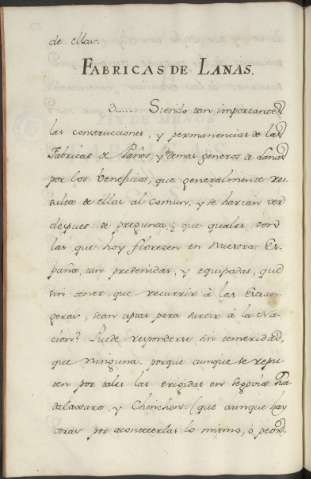 de ellas.
FABRICAS DE LANAS.
Siendo tan importantes
las construcciones, y permanencias de las
Fabricas de Paños, y demas generos de Lanas
por los beneficios, que generalmente re-
sultan de ellas al comun, y se harian ver
despues se pregunta; que quales son
las que hoy florecen en Nuestra Es-
paña, tan prevenidas, y equipadas, que
sin tener que recurrir à las Extran-
geras, sean aptas para surtir à la Na-
cion? Puede responderse sin temeridad,
que ninguna, porque aunque se repu-
ten por tales las erigidas en Segovia, Gua
dalaxara, y Chinchon (que aunque hay
otras por acontecerles lo mismo, ò peor,